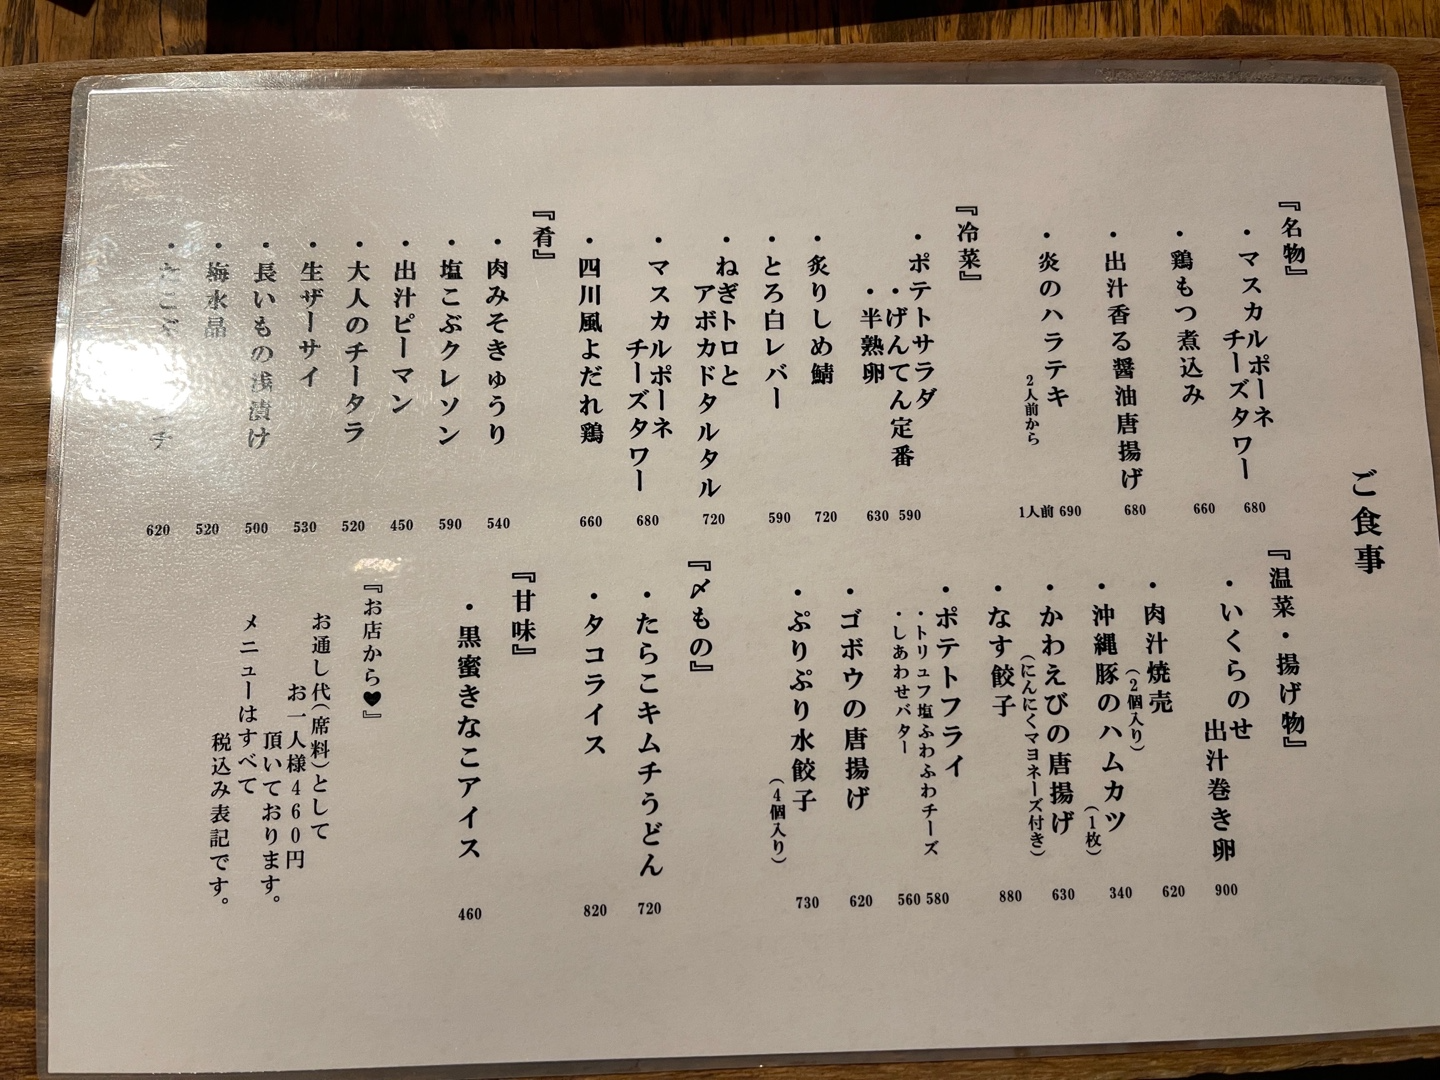 ご食事
『名物』
・マスカルポーネ
チーズタワー
680
・鶏もつ煮込み
660
・出汁香る醤油唐揚げ
680
・炎のハラテキ
2人前から
1人前 690
『冷菜』
・ポテトサラダ
・げんてん定番
590
・半熟卵
630
・炙りしめ鯖
720
・とろ白レバー
590
・ねぎトロと
アボカドタルタル
720
・マスカルポーネ
チーズタワー
680
・四川風よだれ鶏
660
『肴』
・肉みそきゅうり
540
・塩こぶクレソン
590
・出汁ピーマン
450
・大人のチータラ
520
・生ザーサイ
530
・長いもの浅漬け
500
・梅水晶
520
620
『温菜・揚げ物』
・いくらのせ
出汁巻き卵
900
・肉汁焼売
(2個入り)
620
・沖縄豚のハムカツ
(1枚)
340
・かわえびの唐揚げ
(にんにくマヨネーズ付き)
630
・なす餃子
880
・ポテトフライ
・トリュフ塩ふわふわチーズ
580
・しあわせバター
560
・ゴボウの唐揚げ
620
・ぷりぷり水餃子
(4個入り)
730
『〆もの』
・たらこキムチうどん
720
・タコライス
820
『甘味』
・黒蜜きなこアイス
460
『お店から♥』
お通し代(席料)として
お一人様460円
頂いております。
メニューはすべて
税込み表記です。